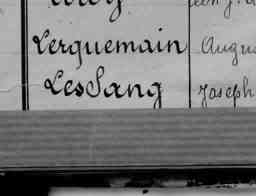 Lerquemain Augus
LesSang Joseph